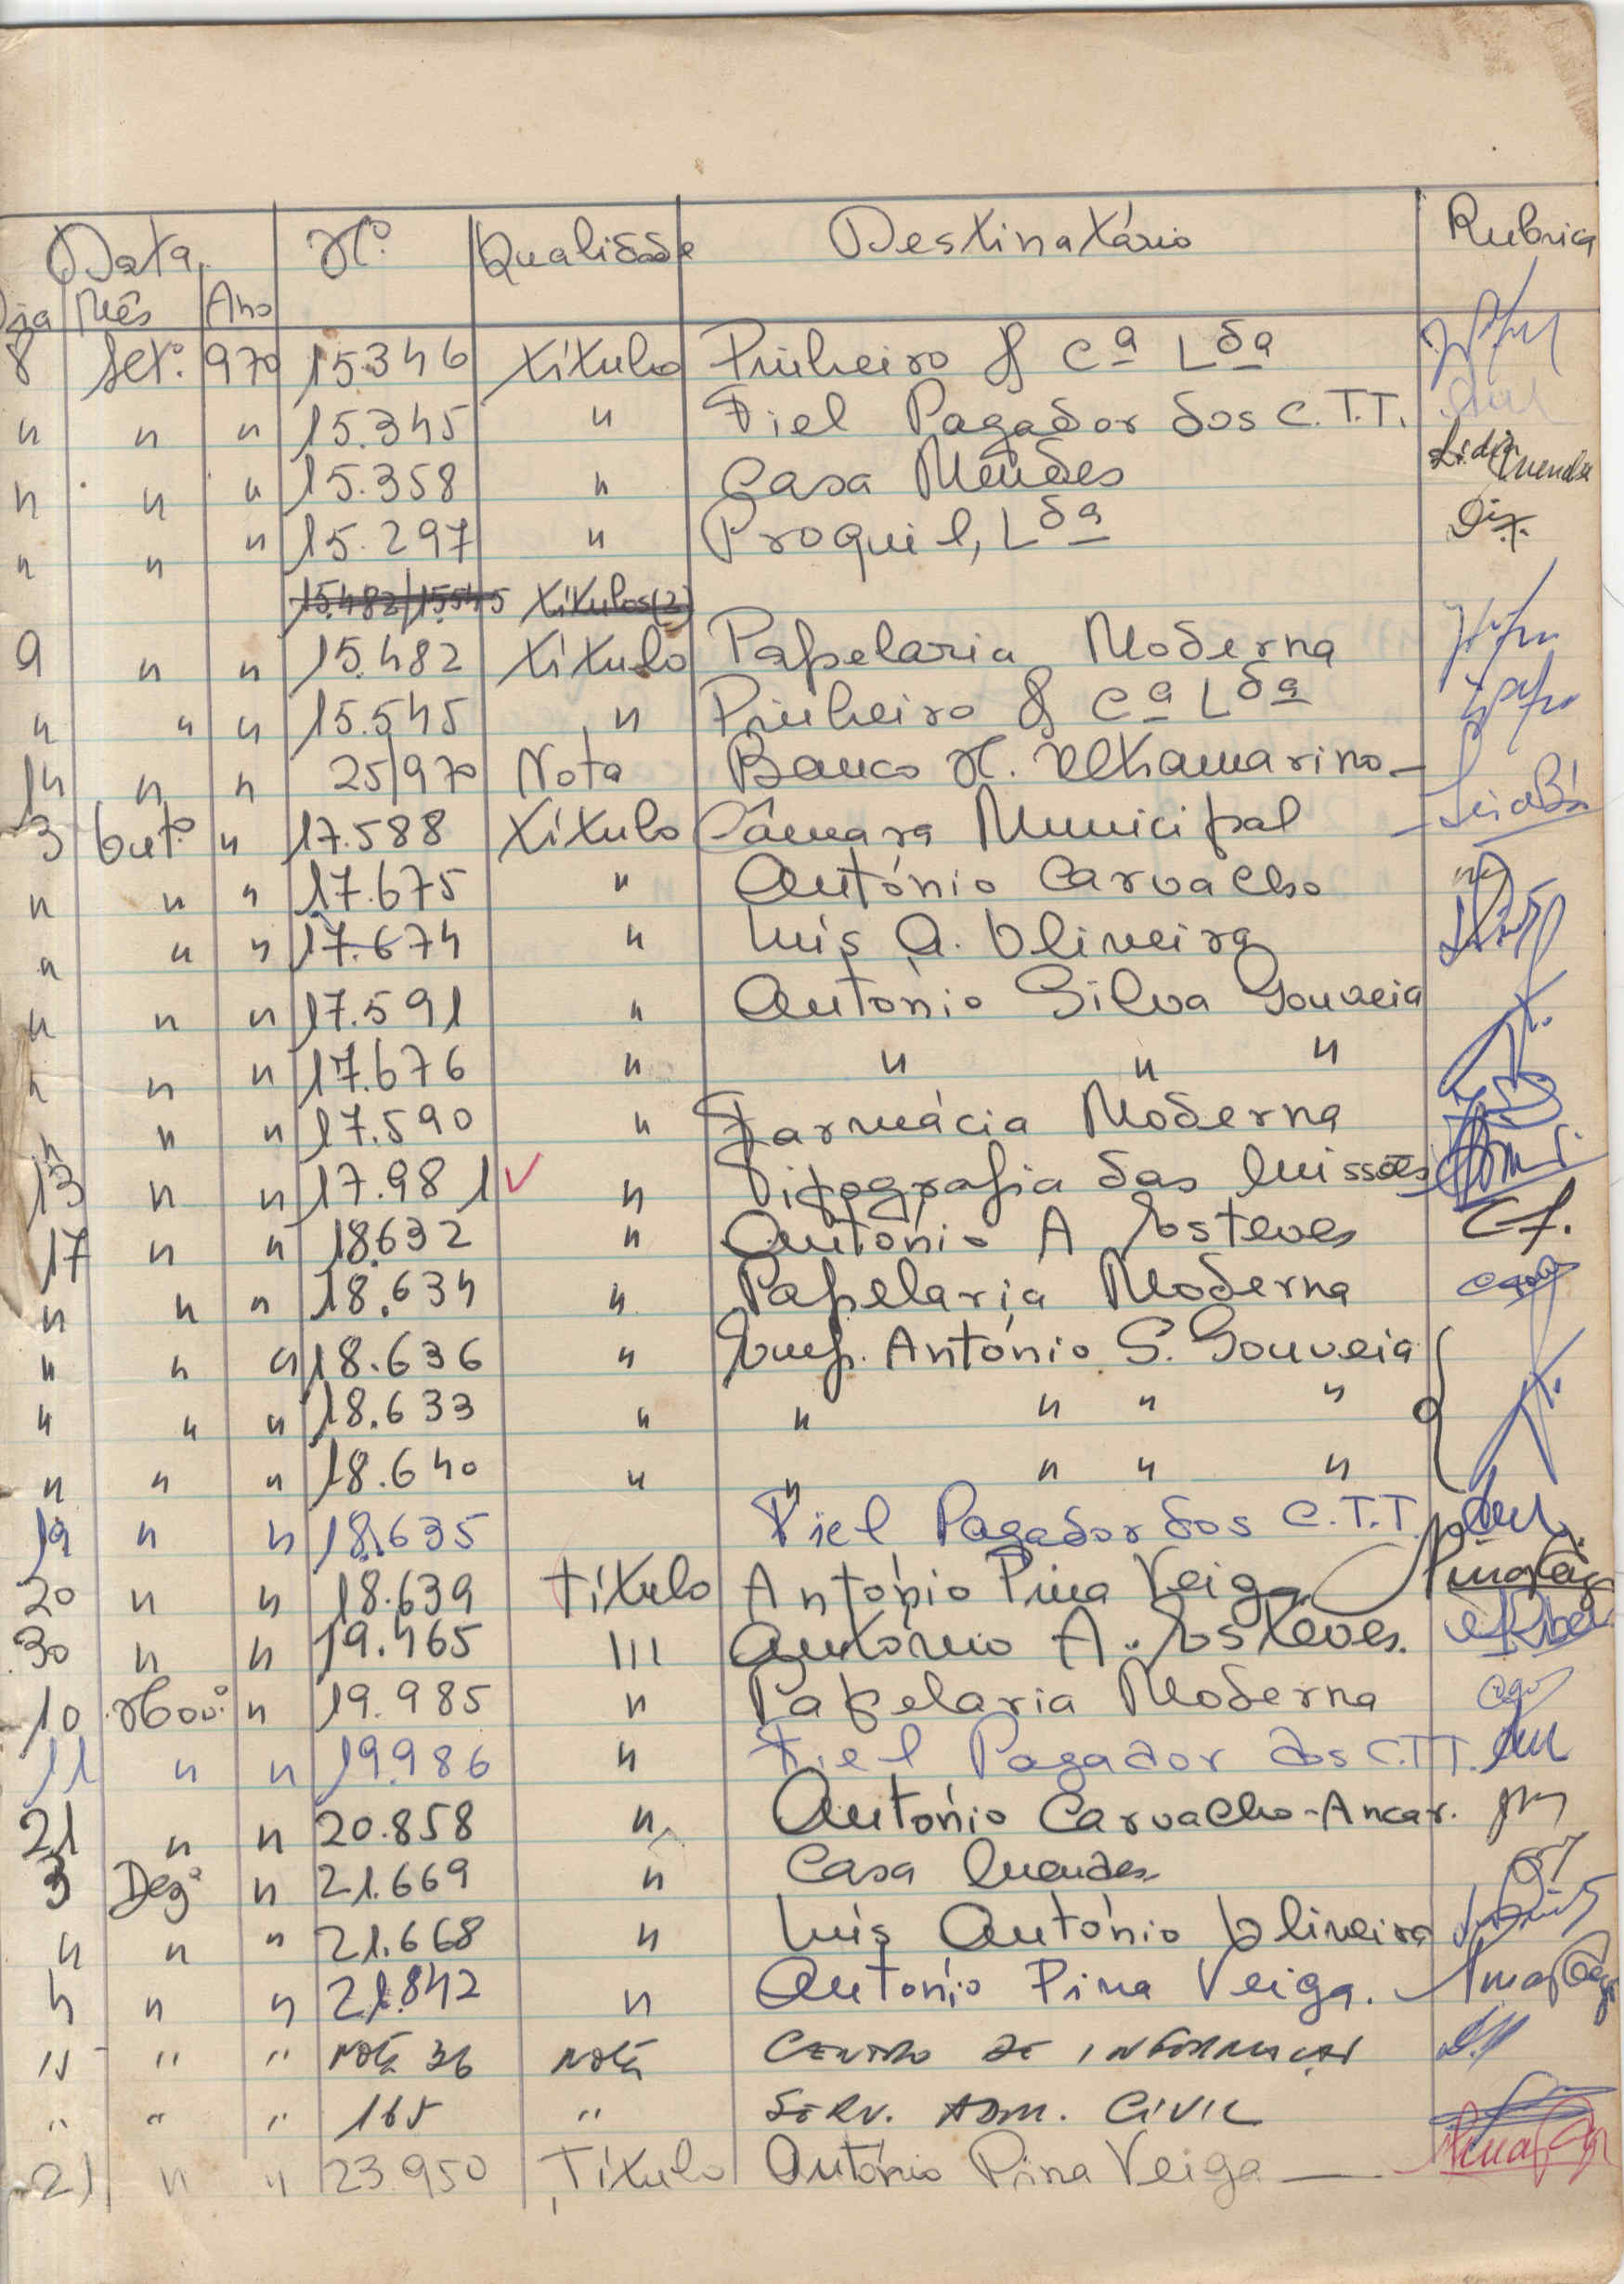 Data Nº Qualidade Destinatário Rubrica
Dia Mês Ano
8 Setº. 970 15.346 Título Pinheiro & Cª Ldª
" " " 15.345 " Fiel Pagador dos C.T.T.
" " " 15.358 " Casa Mendes Lidia Mendes
" " " 15.297 " Proquil, Ldª
15.482/15.545 Títulos(2)
9 " " 15.482 Título Papelaria Moderna
" " " 15.545 " Pinheiro & Cª Ldª
14 " " 25/970 Nota Banco N. Ultramarino
3 Outº " 17.588 Título Câmara Municipal
" " " 17.675 " António Carvalho
" " " 17.674 " Luís A. Oliveira
" " " 17.591 " António Silva Gouveia
" " " 17.676 " " " "
" " " 17.590 " Farmácia Moderna
13 " " 17.981 " Tipografia das Missões
17 " " 18.632 " António A Esteves
" " " 18.634 " Papelaria Moderna
" " " 18.636 " Emp. António S. Gouveia
" " " 18.633 " " " " "
" " " 18.640 " " " " "
19 " " 18.635 Fiel Pagador dos C.T.T.
20 " " 18.639 Título António Pina Veiga
30 " " 19.465 III António A. Esteves.
10 Novº. " 19.985 " Papelaria Moderna
11 " " 19.986 " Fiel Pagador dos C.TT.
21 " " 20.858 " António Carvalho-Ancar.
3 Dezº " 21.669 " Casa Mendes
" " " 21.668 " Luís António Oliveira
4 " " 21.842 " António Pina Veiga.
15 " " Nota 36 Nota CENTRO DE INFORMAÇÃO
" " " 165 " SERV. ADM. CIVIL
21 " " 23.950 Título António Pina Veiga